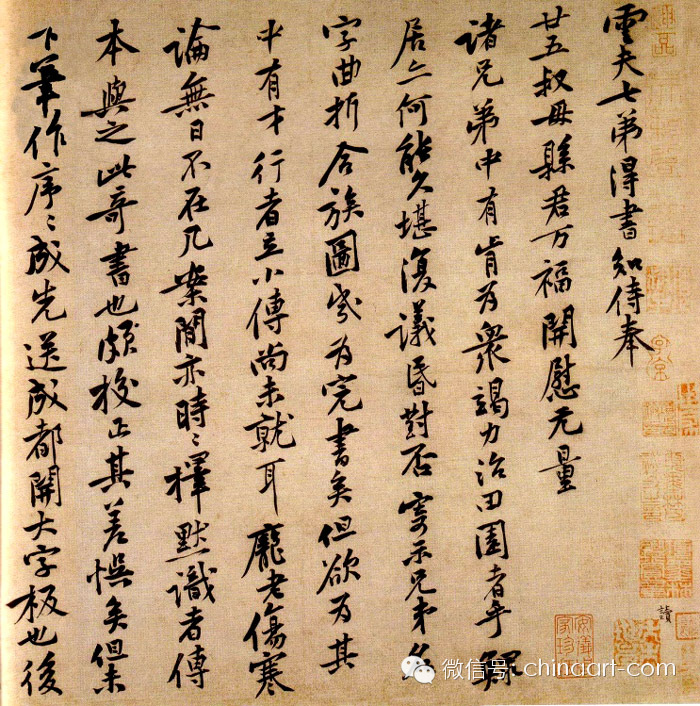 雲夫七弟得書知侍奉
廿五叔母縣君万福開慰无量
諸兄弟中有肯为衆竭力治田園者乎鰥
居亦何能久堪復議昏對否寄示兄弟名
字曲折合族圖幾为完書矣但欲为其
中有才行者立小傳尚未就耳龐老傷寒
論無日不在几案間亦時〻擇默識者傳
本與之此奇書也頗校正其差悮矣但未
下筆作序〻成先送成都開大字板也後
讀
微信号: chinaart-com